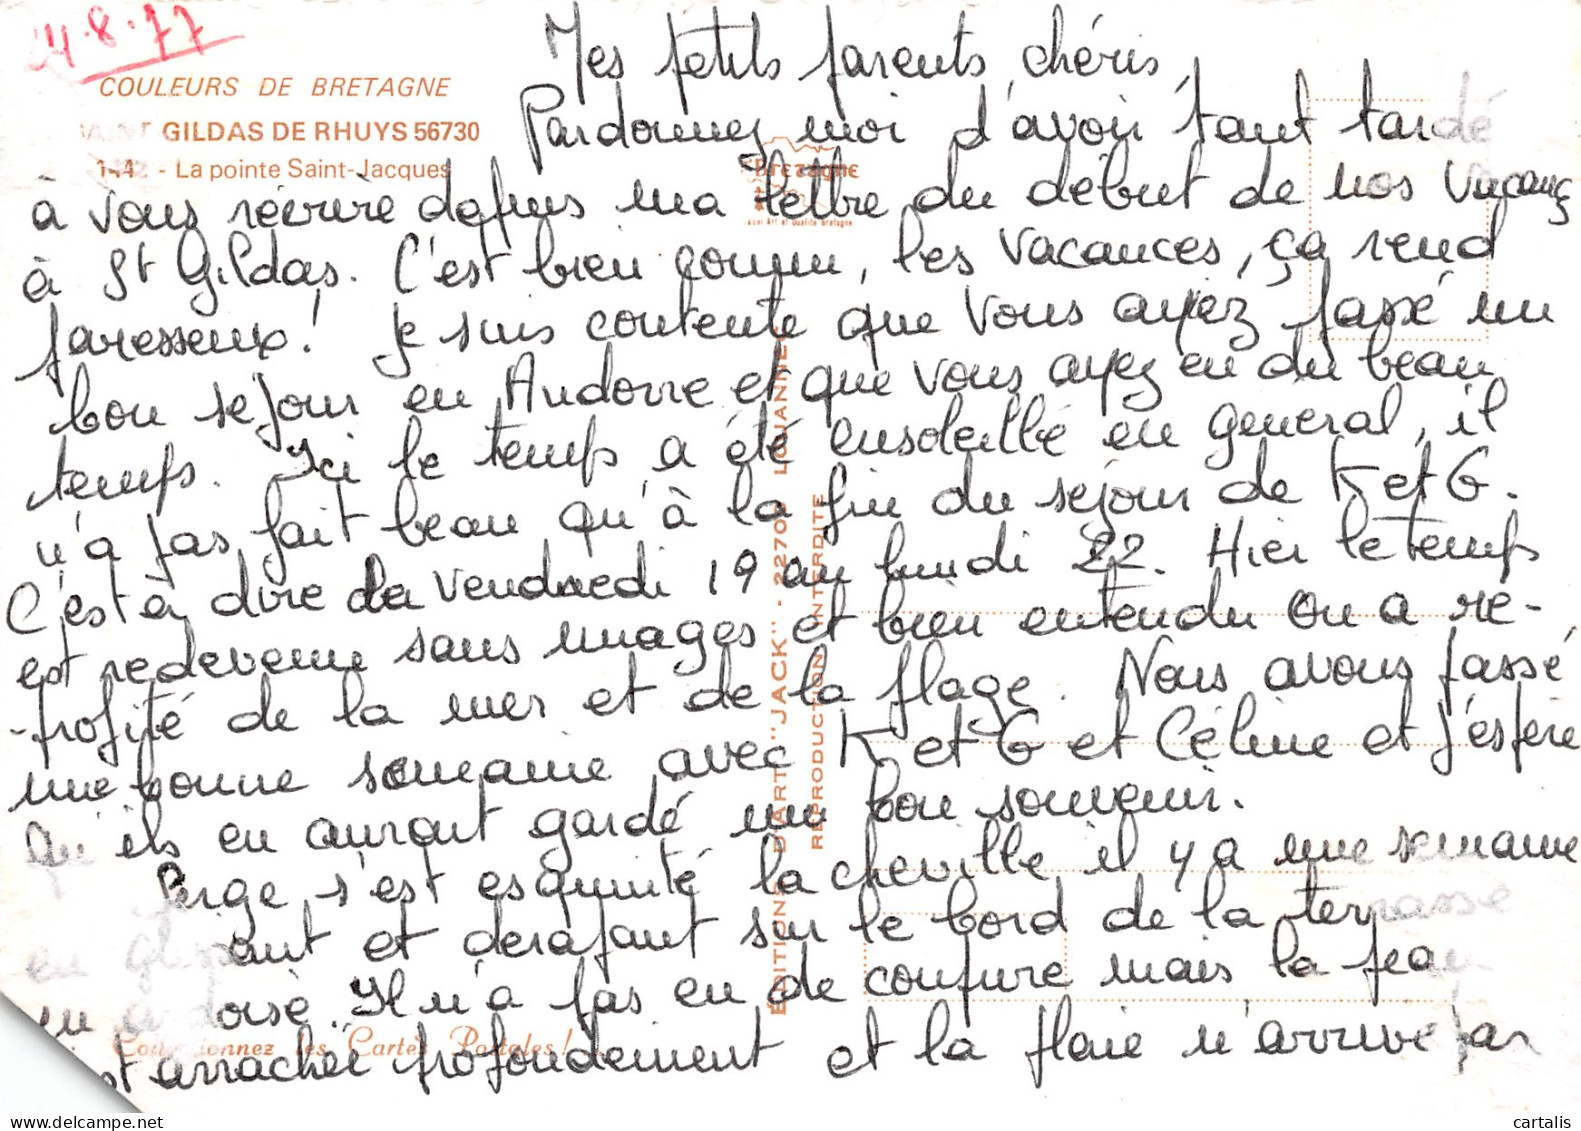 24.8.77
COULEURS DE BRETAGNE
SAINT GILDAS DE RHUYS 56730
142 - La pointe Saint-Jacques
Bretagne
Label Art et Qualité Bretagne
ÉDITIONS D'ART "JACK" - 22700 LOUANNEC
REPRODUCTION INTERDITE
Collectionnez les Cartes Postales!
Mes petits parents chéris,
Pardonnez moi d'avoir tant tardé
à vous réécrire depuis ma lettre du début de nos vacances
à St Gildas. C'est bien connu, les vacances, ça rend
paresseux! Je suis contente que vous ayez passé un
bon séjour en Andorre et que vous ayez eu du beau
temps. Ici le temps a été ensoleillé en général, il
n'a pas fait beau qu'à la fin du séjour de K et G.
C'est à dire du vendredi 19 au lundi 22. Hier le temps
est redevenu sans nuages et bien entendu on a re-
-profité de la mer et de la plage. Nous avons passé
une bonne semaine avec K et G et Céline et j'espère
qu'ils en auront gardé un bon souvenir.
Serge s'est esquinté la cheville il y a une semaine
en glissant et dérapant sur le bord de la terrasse
en ardoise. Il n'a pas eu de coupure mais la peau
est arrachée profondément et la plaie n'arrive pas
cartalis